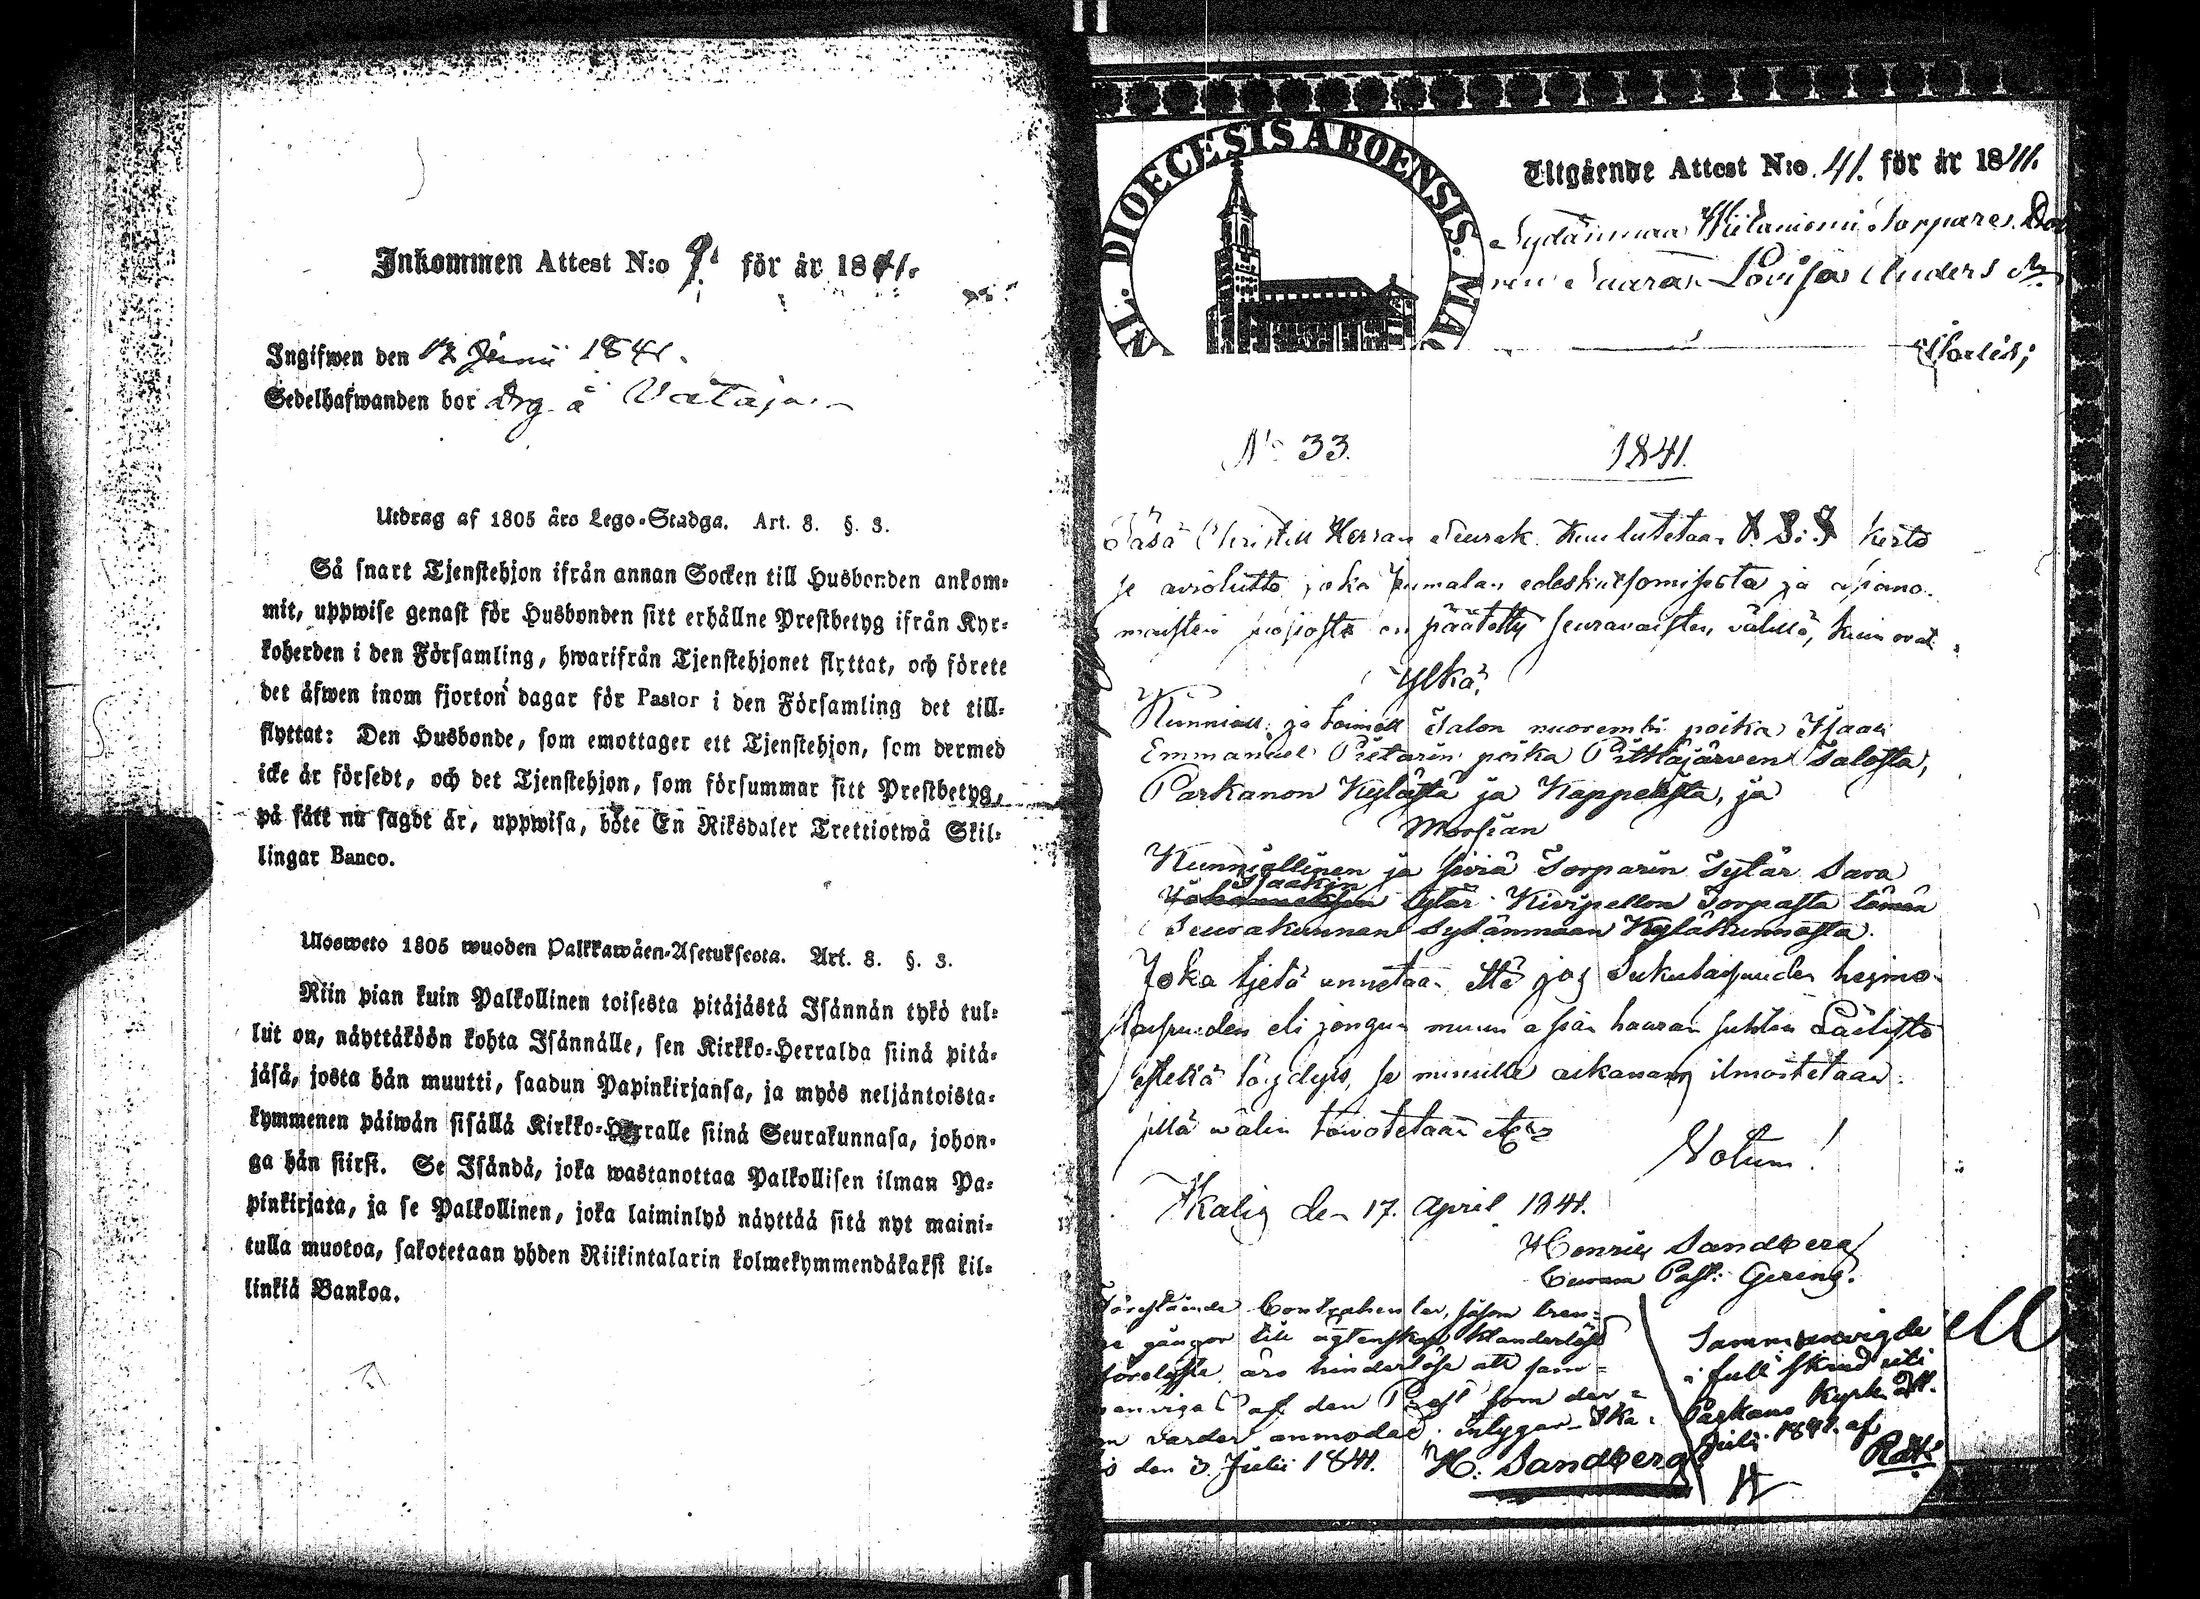 Inkommen Attest N:o 9. för år 1841.
Ingifwen den 12 Junii 1841.
Sedelhafwanden bor Drg å Vataja
Utdrag af 1805 års Lego-Stadga. Art. 8. §. 3.
Så snart Tjenstehjon ifrån annan Socken till Husbonden ankom-
mit, uppwise genast för Husbonden sitt erhållne Prestbetyg ifrån Kyr-
koherden i den Församling, hwarifrån Tjenstehjonet flyttat, och förete
det äfwen inom fjorton dagar för Pastor i den Församling det till-
flyttat: Den Husbonde, som emottager ett Tjenstehjon, som dermed
icke är försedt, och det Tjenstehjon, som försummar sitt Prestbetyg,
på sätt nu sagdt är, uppwisa, böte En Riksdaler Trettiotwå Skil-
lingar Banco.
Ulosweto 1805 wuoden Palkkawäen-Asetuksesta. Art. 8. §. 3.
Niin pian kuin Palkollinen toisesta pitäjästä Isännän tykö tul-
lut on, näyttäköön kohta Isännälle, sen Kirkko-Herralda siinä pitä-
jäsä, josta hän muutti, saadun Papinkirjansa, ja myös neljäntoista-
kymmenen päiwän sisällä Kirkko-Herralle siinä Seurakunnasa, johon-
ga hän siirsi. Se Isändä, joka wastanottaa Palkollisen ilman Pa-
pinkirjata, ja se Palkollinen, joka laiminlyö näyttää sitä nyt maini-
tulla muotoa, sakotetaan yhden Riikintalarin kolmekymmendäkaksi kil-
linkiä Bankoa.
DIOECESIS ABOENSIS. MA
Utgående Attest N:o 41. för år 1841.
Sydänmaa Torpares
Lovisa Anders
No 33. 1841.
Täsä Christ Herran Seurak. Kuulutetaan kerto
se avioliitto, joka Jumalan edeskatsomisesta ja asiano-
maisten päätetty seuravaisten välillä, kuin ovat
Ylkä,
Kunniall. ja toimell Talon nuorembi poika Isaac
Emmanuel Pietarin poika Pitkäjärwen Talosta,
Parkanon Kylästä ja Kappelista, ja
Morsian
Kunniallinen ja siviä Torparin Tytär Sara
Isaakin
tytär Kivipellon Torpasta tämän
Seurakunnan Sydänmaan Kyläkunnasta.
Joka tietä annetaan että jos Sukulaisuuden heimo-
laisuuden eli jongun muun asian haaran suhten Laillista
estettä löydyis, se minulle aikanans ilmoitetaan.
sillä välin toivotetaan etc
Notum!
Ikalis den 17. April 1841.
Henric Sandberg
Curam Past: Gerens.
Förestående Contrahenter, såsom tren-
ne gångor till ägtenskap klanderlöst
förelyste, äro hinderlöse att sam-
manviga af den Prest som der-
om varder anmodad; intygar Ika-
is den 3. Julii 1841. H. Sandberg
Sammanvigde
i full skrud uti
Parkano Kyrka
Juli 1841. af